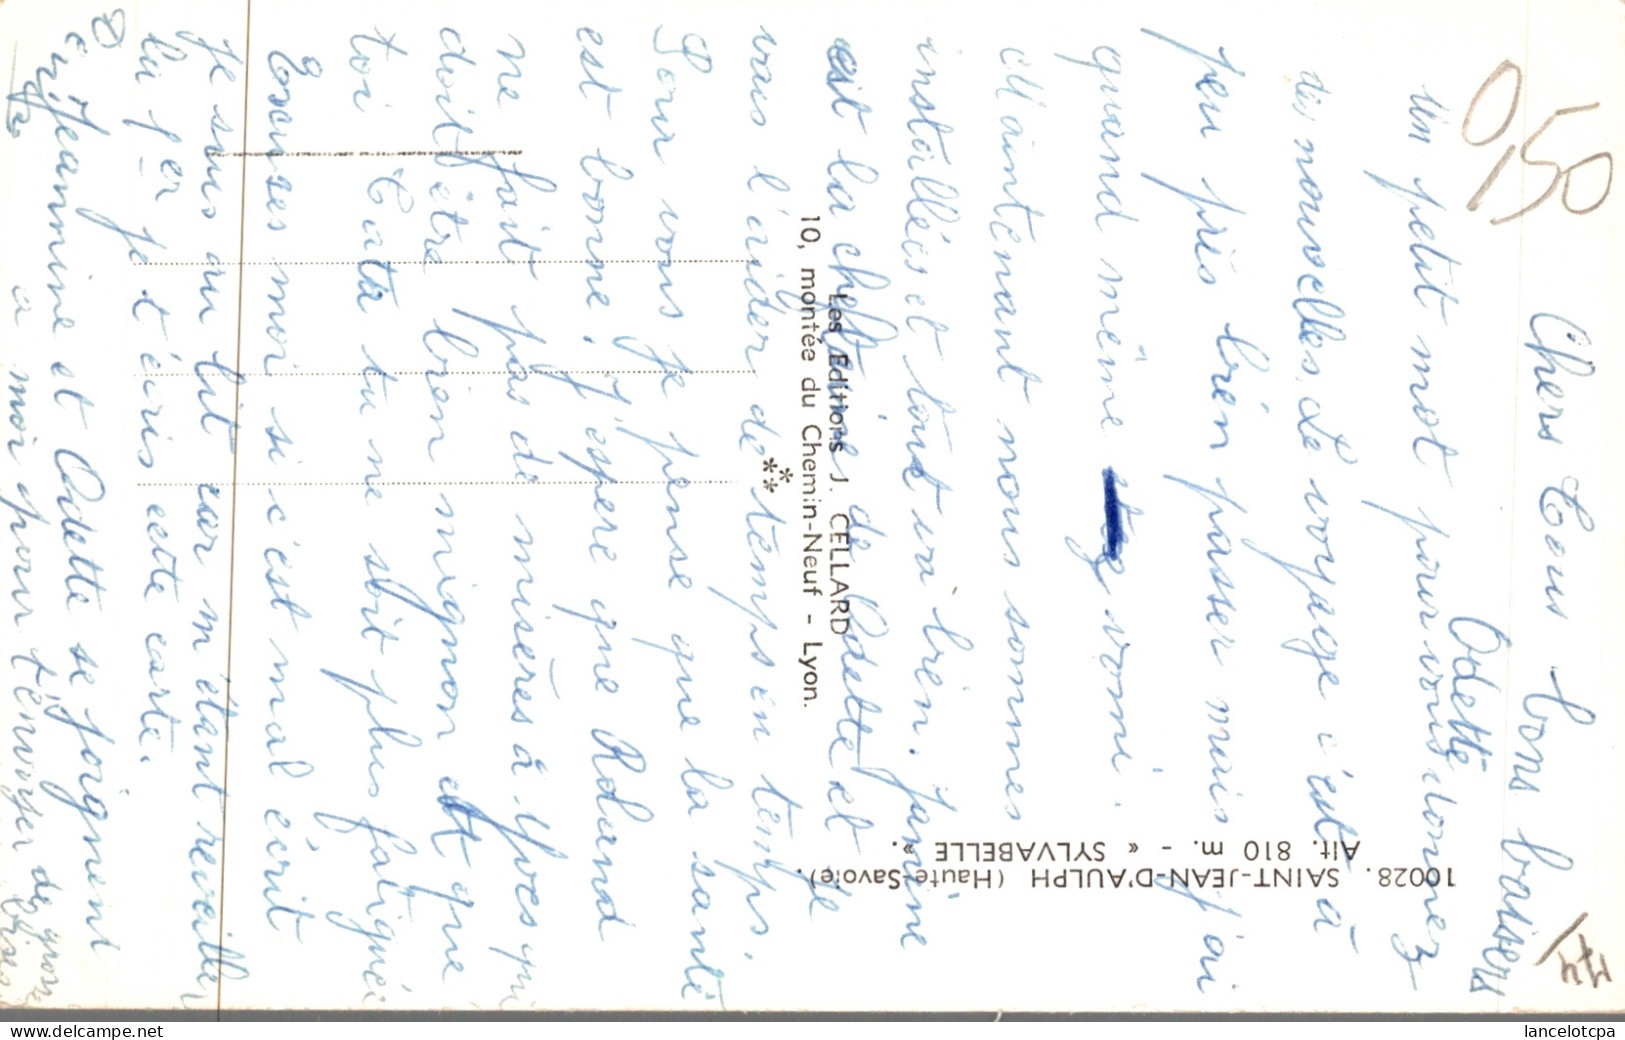 Chers Tous
Un petit mot pour vous donnez
de nouvelles. Le voyage c'est à
peu près bien passer mais j'ai
quand même vomi.
Maintenant nous sommes
installées et tout va bien. Janine
est la cheftaine de Odette et je
vais l'aider de temps en temps.
Pour vous je pense que la santé
est bonne. J'espère que Roland
ne fait pas de misères à Yves qui
doit être bien mignon et que
toi Tata tu ne soit plus fatiguée
Excuses moi si c'est mal écrit
je suis au lit car m'étant réveiller
la 1er je t'écris cette carte.
Jeannine et Odette se joignent
à moi pour t'envoyer de grosses
bises
bons baisers
Odette
0,50
74
10028. SAINT-JEAN-D'AULPH (Haute-Savoie).
Alt. 810 m. - « SYLVABELLE ».
Les Editions J. CELLARD
10, montée du Chemin-Neuf - Lyon.
***
www.delcampe.net
lancelotcpa